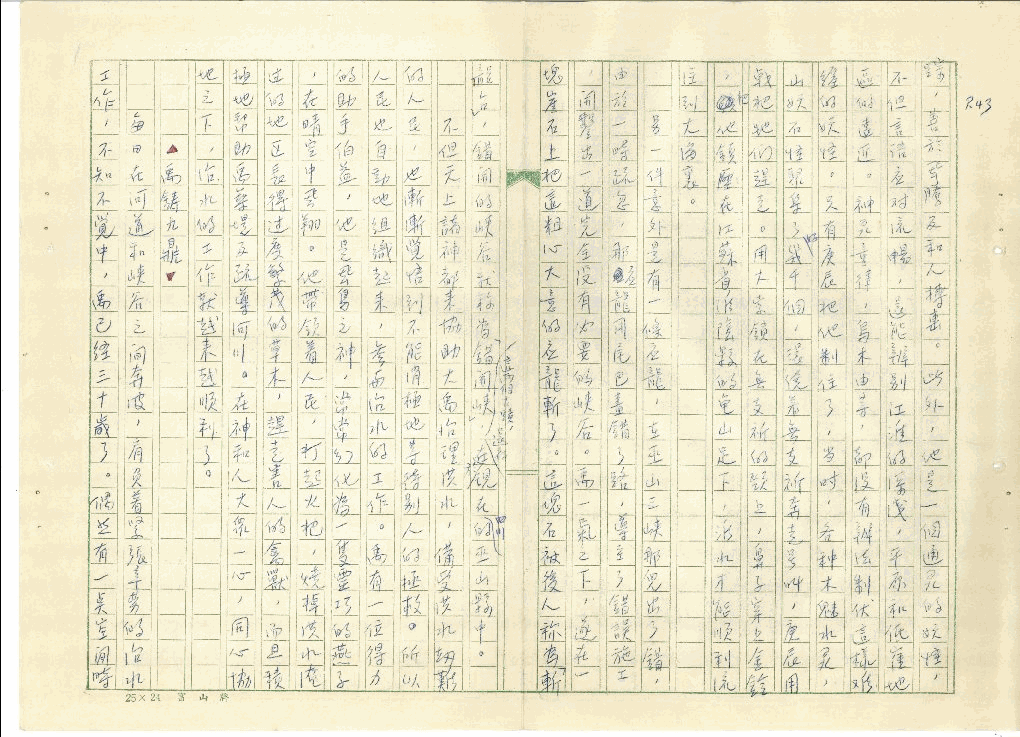 P.43
善於奔騰及和人搏擊。此外,也是一個通靈的妖怪,
不但言語应对流暢,还能辨别江淮的深浅,平原和低窪地
區的遠近。神灵童律,烏木由等,都没有辦法制伏這樣难
缠的妖怪。只有庚辰把他制住了,当时,各种木魅水灵,
山妖石怪聚集了几千個,環绕着無支祈奔走号叫,庚辰用
戟把牠们趕走。用大索锁在無支祈的颈上,鼻子穿上金鈴
,把他鎮壓在江蘇省淮陰縣的龟山足下,治水才能順利流
注到大海裏。
另一件意外是有一條应龍,在巫山三峡那兒出了錯,
由於一時疏忽,那应龍用尾巴畫錯了路,導至了錯誤施工
,開鑿出一道完全没有必要的峡谷。禹一氣之下,遂在一
塊崖石上把這粗心大意的应龍斬了。這塊石被後人称为「斬
龍台」,錯開的峡谷就称为「錯開峡」,現在的四川巫山縣中。
不但天上諸神都来協助大禹治理洪水,備受洪水劫難
的人民,也漸漸覚悟到不能消極地等待别人的拯救。所以
人民也自動地組織起来,参與治水的工作。禹有一位得力
的助手伯益,他是燕鳥之神,常常幻化为一隻靈巧的燕子
,在晴空中飛翔。他带領着人民,打起火把,燒掉洪水淹
过的地区長得过度繁茂的草木,趕走害人的禽獸,而且積
極地帮助禹築堤及疏導河川。在神和人大家一心,同心協
地之下,治水的工作就越来越順利了。
▲禹鑄九鼎▼
每日在河道和峡谷之间奔波,肩負着緊張辛劳的治水
工作,不知不覚中,禹已經三十歲了。偶然有一天空閒時
25×24